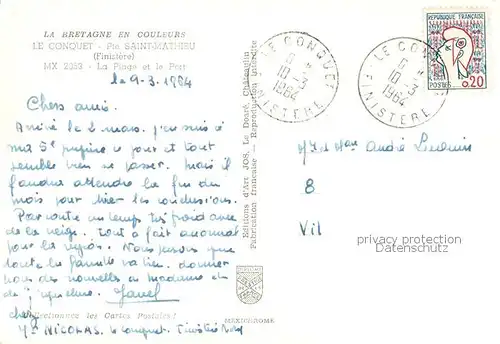 LA BRETAGNE EN COULEURS
LE CONQUET - Pte SAINT-MATHIEU
(Finistère)
MX 2353 - La Plage et le Port
le 9-3.1964
Chers amis.
Arrivé le 2 mars. j'en suis à
ma 5e piqûre ce jour et tout
semble bien se passer. Mais il
faudra attendre la fin du
mois pour tirer les conclusions.
Par contre un temps très froid avec
de la neige. Tout à fait anormal
pour la région. Nous pensons que
toute la famille va bien. donnez
nous des nouvelles de madame et
de
chez
Mme NICOLAS. le Conquet. Finistère Nord
Collectionnez les Cartes Postales!
Editions d'Art JOS. Le Doaré, Châteaulin
Fabrication française - Reproduction interdite
MEXICHROME
LE CONQUET
10-3
1964
FINISTERE
LE CONQUET
10-3
1964
FINISTERE
REPUBLIQUE FRANÇAISE
POSTES
0,20
Mr et Mme André
8
Vil
privacy protection
Datenschutz